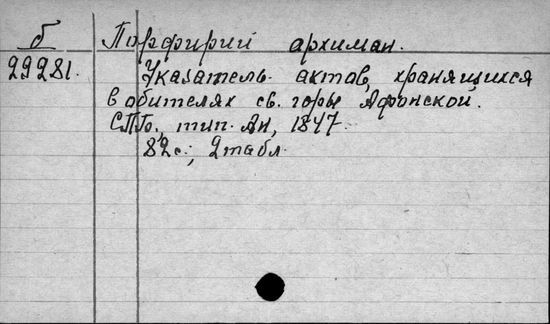 б Порфирий архиман.
29281. Указатель актов, хранящихся
в обителях св. горы Афонской.
СПб., тип. АН, 1847.
82 с.; 2 табл.